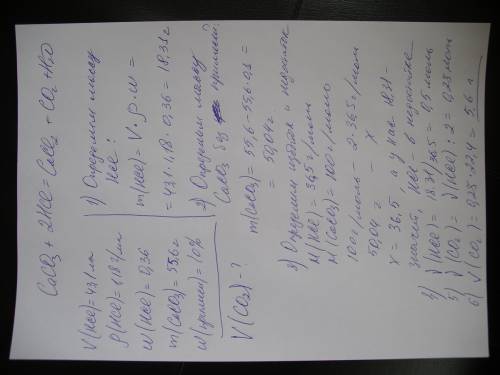 CaCO₃ + 2HCl = CaCl₂ + CO₂ + H₂O
V(HCl) = 43,1 мл
ρ(HCl) = 1,18 г/мл
W(HCl) = 0,36
m(CaCO₃) = 55,6 г
W(примеси) = 10%
V(CO₂) - ?
1) Определим массу
HCl:
m(HCl) = V · ρ · w =
= 43,1 · 1,18 · 0,36 = 18,31 г
2) Определим массу
CaCO₃ без примесей:
m(CaCO₃) = 55,6 - 55,6·0,1 =
= 50,04 г
3) Определим избыток и недостаток
M(HCl) = 36,5 г/моль
M(CaCO₃) = 100 г/моль
100 г/моль – 2·36,5 г/моль
50,04 г – x
x = 36,5, а у нас 18,31 -
значит, HCl - в недостатке
3) √(HCl) = 18,31/36,5 = 0,5 моль
5) √(CO₂) = √(HCl) : 2 = 0,25 моль
6) V(CO₂) = 0,25 · 22,4 = 5,6 л